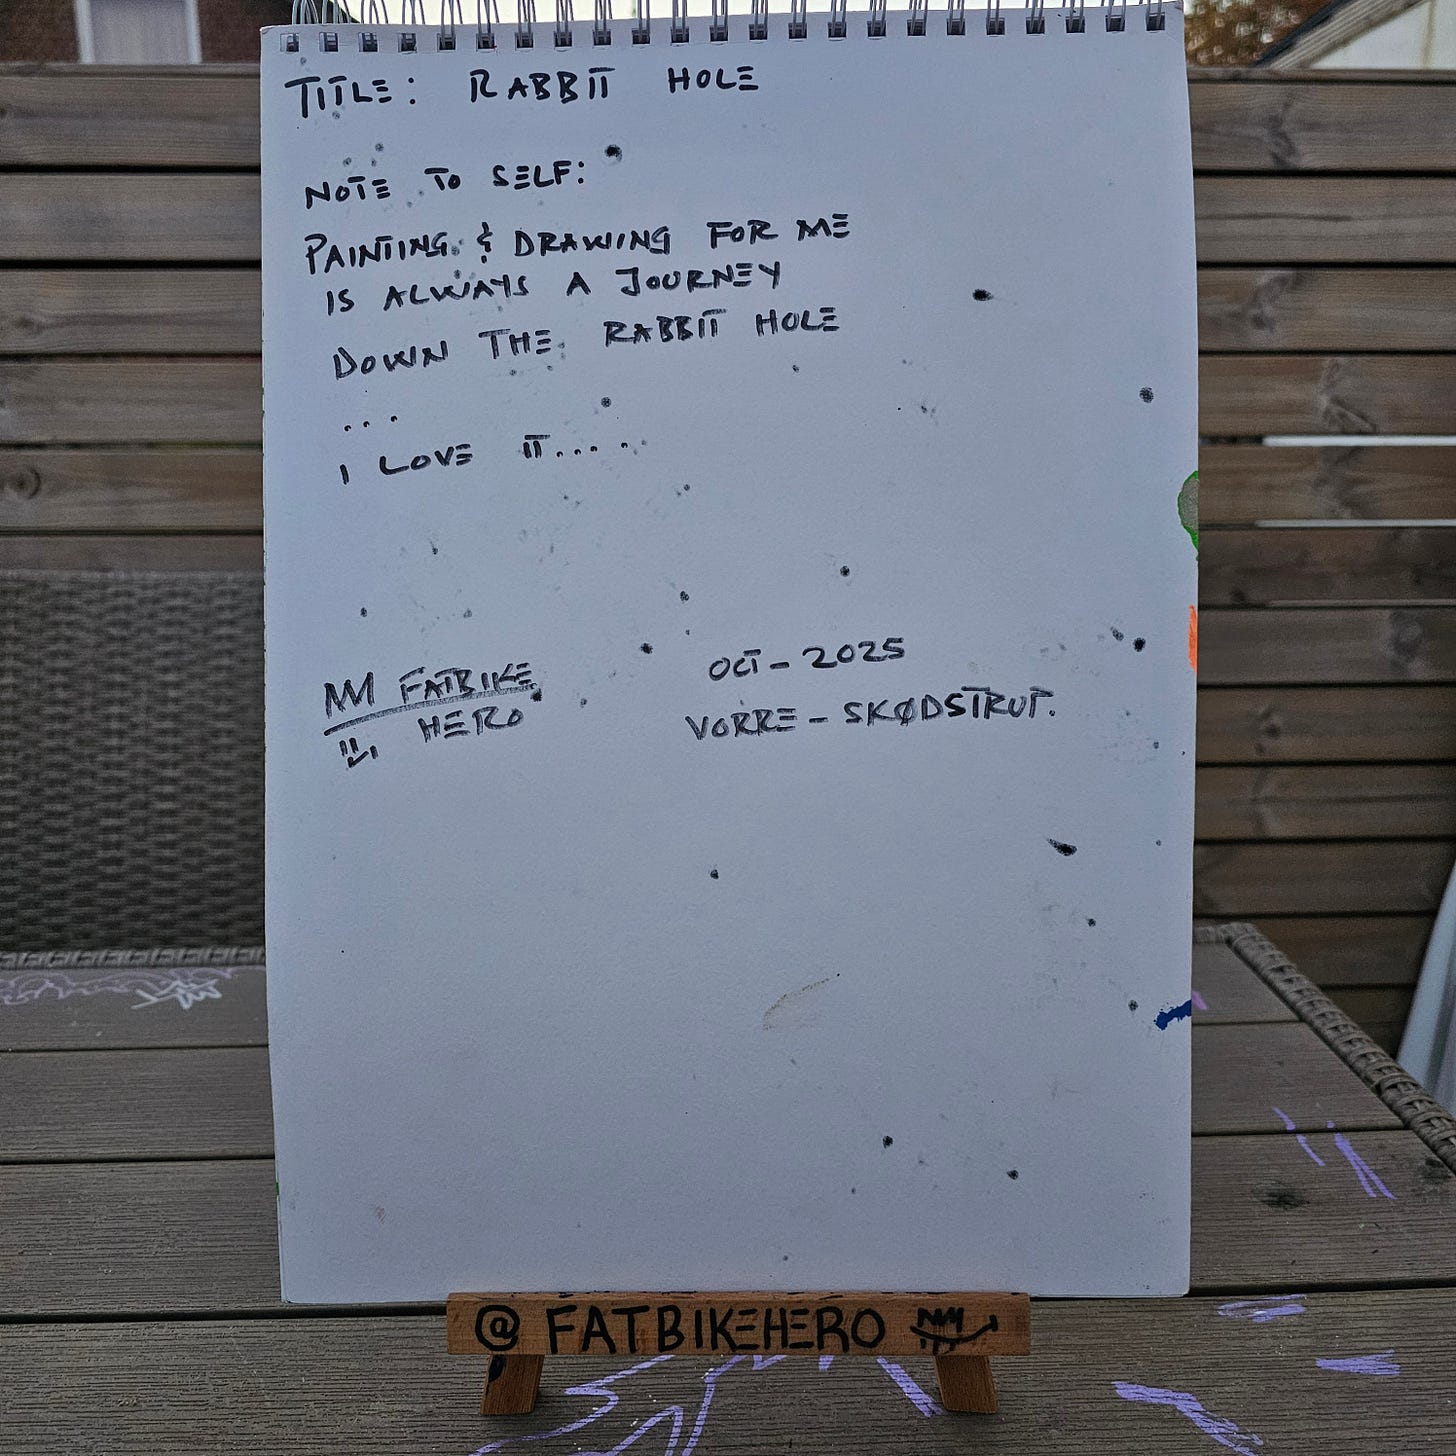 TITLE: RABBIT HOLE
NOTE TO SELF:
PAINTING & DRAWING FOR ME
IS ALWAYS A JOURNEY
DOWN THE RABBIT HOLE
...
I LOVE IT....
FATBIKE
HERO
OCT - 2025
VORRE - SKØDSTRUP.
@FATBIKEHERO